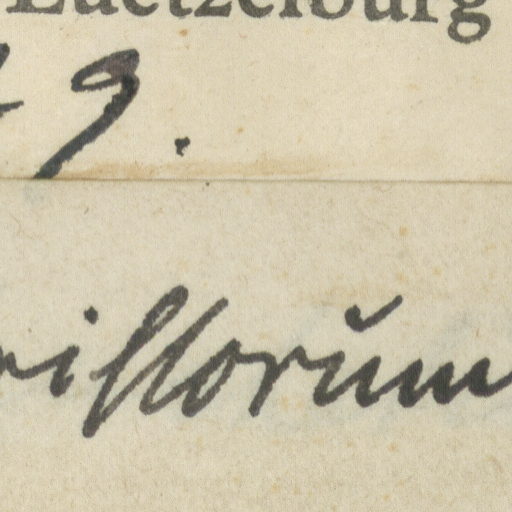 Luetzelburg
9.
istorum